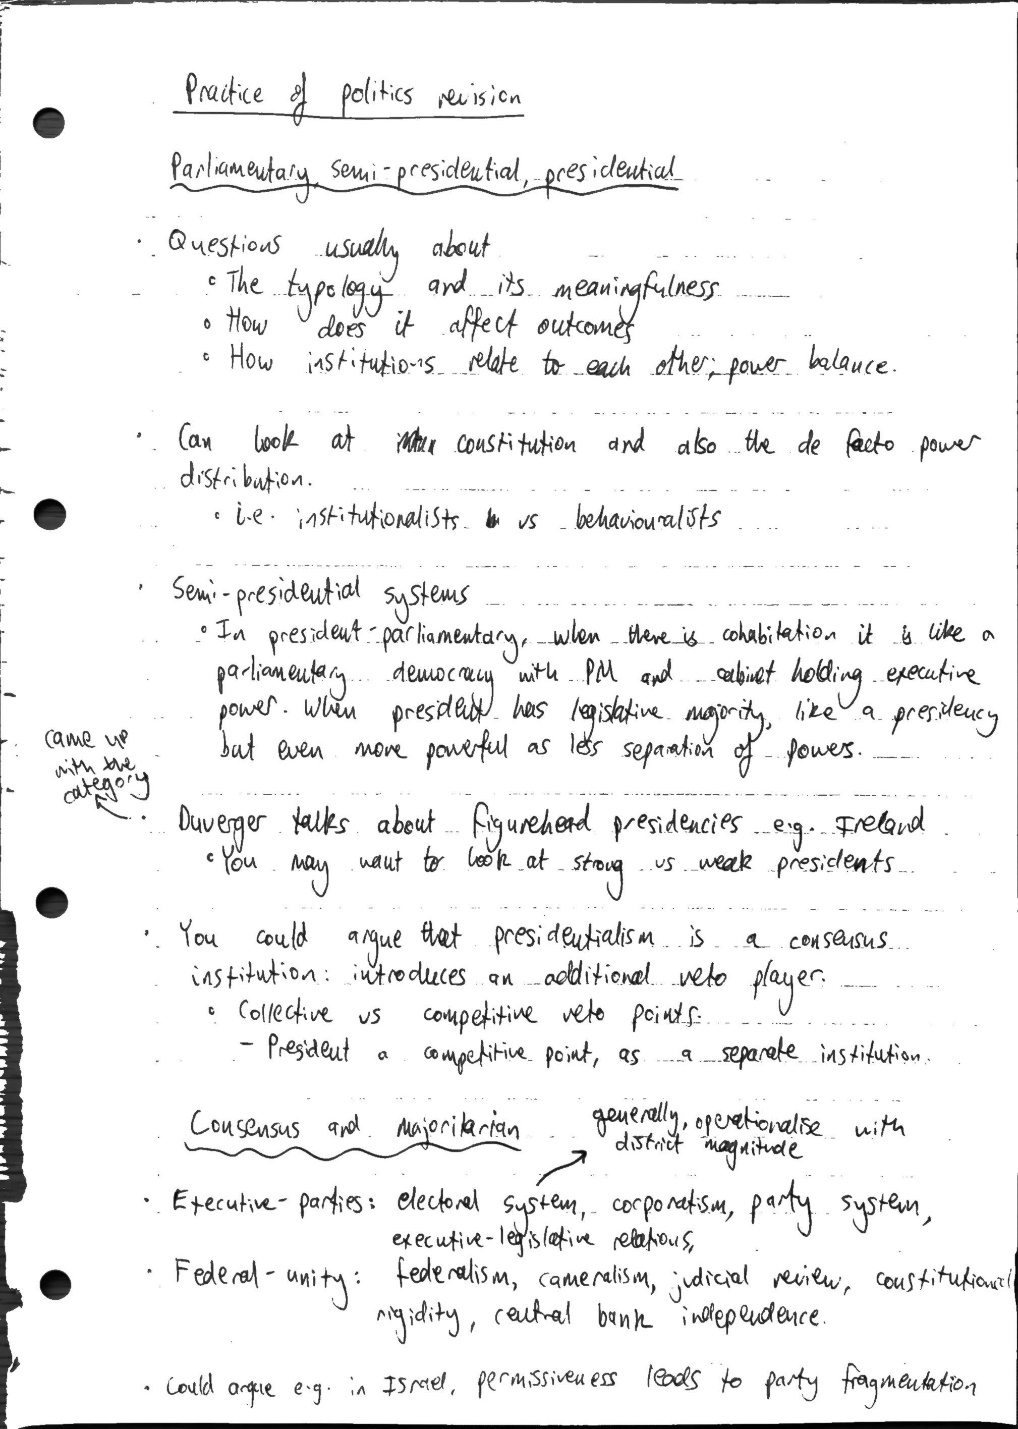 Practice of politics revision
Parliamentary, semi-presidential, presidential
· Questions usually about
° The typology and its meaningfulness
° How does it affect outcomes
° How institutions relate to each other; power balance.
· Can look at constitution and also the de facto power
distribution.
° i.e. institutionalists vs behaviouralists
· Semi-presidential systems
° In president-parliamentary, when there is cohabitation it is like a
parliamentary democracy with PM and cabinet holding executive
power. When president has legislative majority, like a presidency
but even more powerful as less separation of powers.
came up
with the
category
· Duverger talks about figurehead presidencies e.g. Ireland
° You may want to look at strong vs weak presidents
· You could argue that presidentialism is a consensus
institution: introduces an additional veto player.
° Collective vs competitive veto points.
- President a competitive point, as a separate institution.
Consensus and majoritarian
generally, operationalise with
district magnitude
· Executive-parties: electoral system, corporatism, party system,
executive-legislative relations,
· Federal-unity: federalism, cameralism, judicial review, constitutional
rigidity, central bank independence.
· Could argue e.g. in Israel, permissiveness leads to party fragmentation